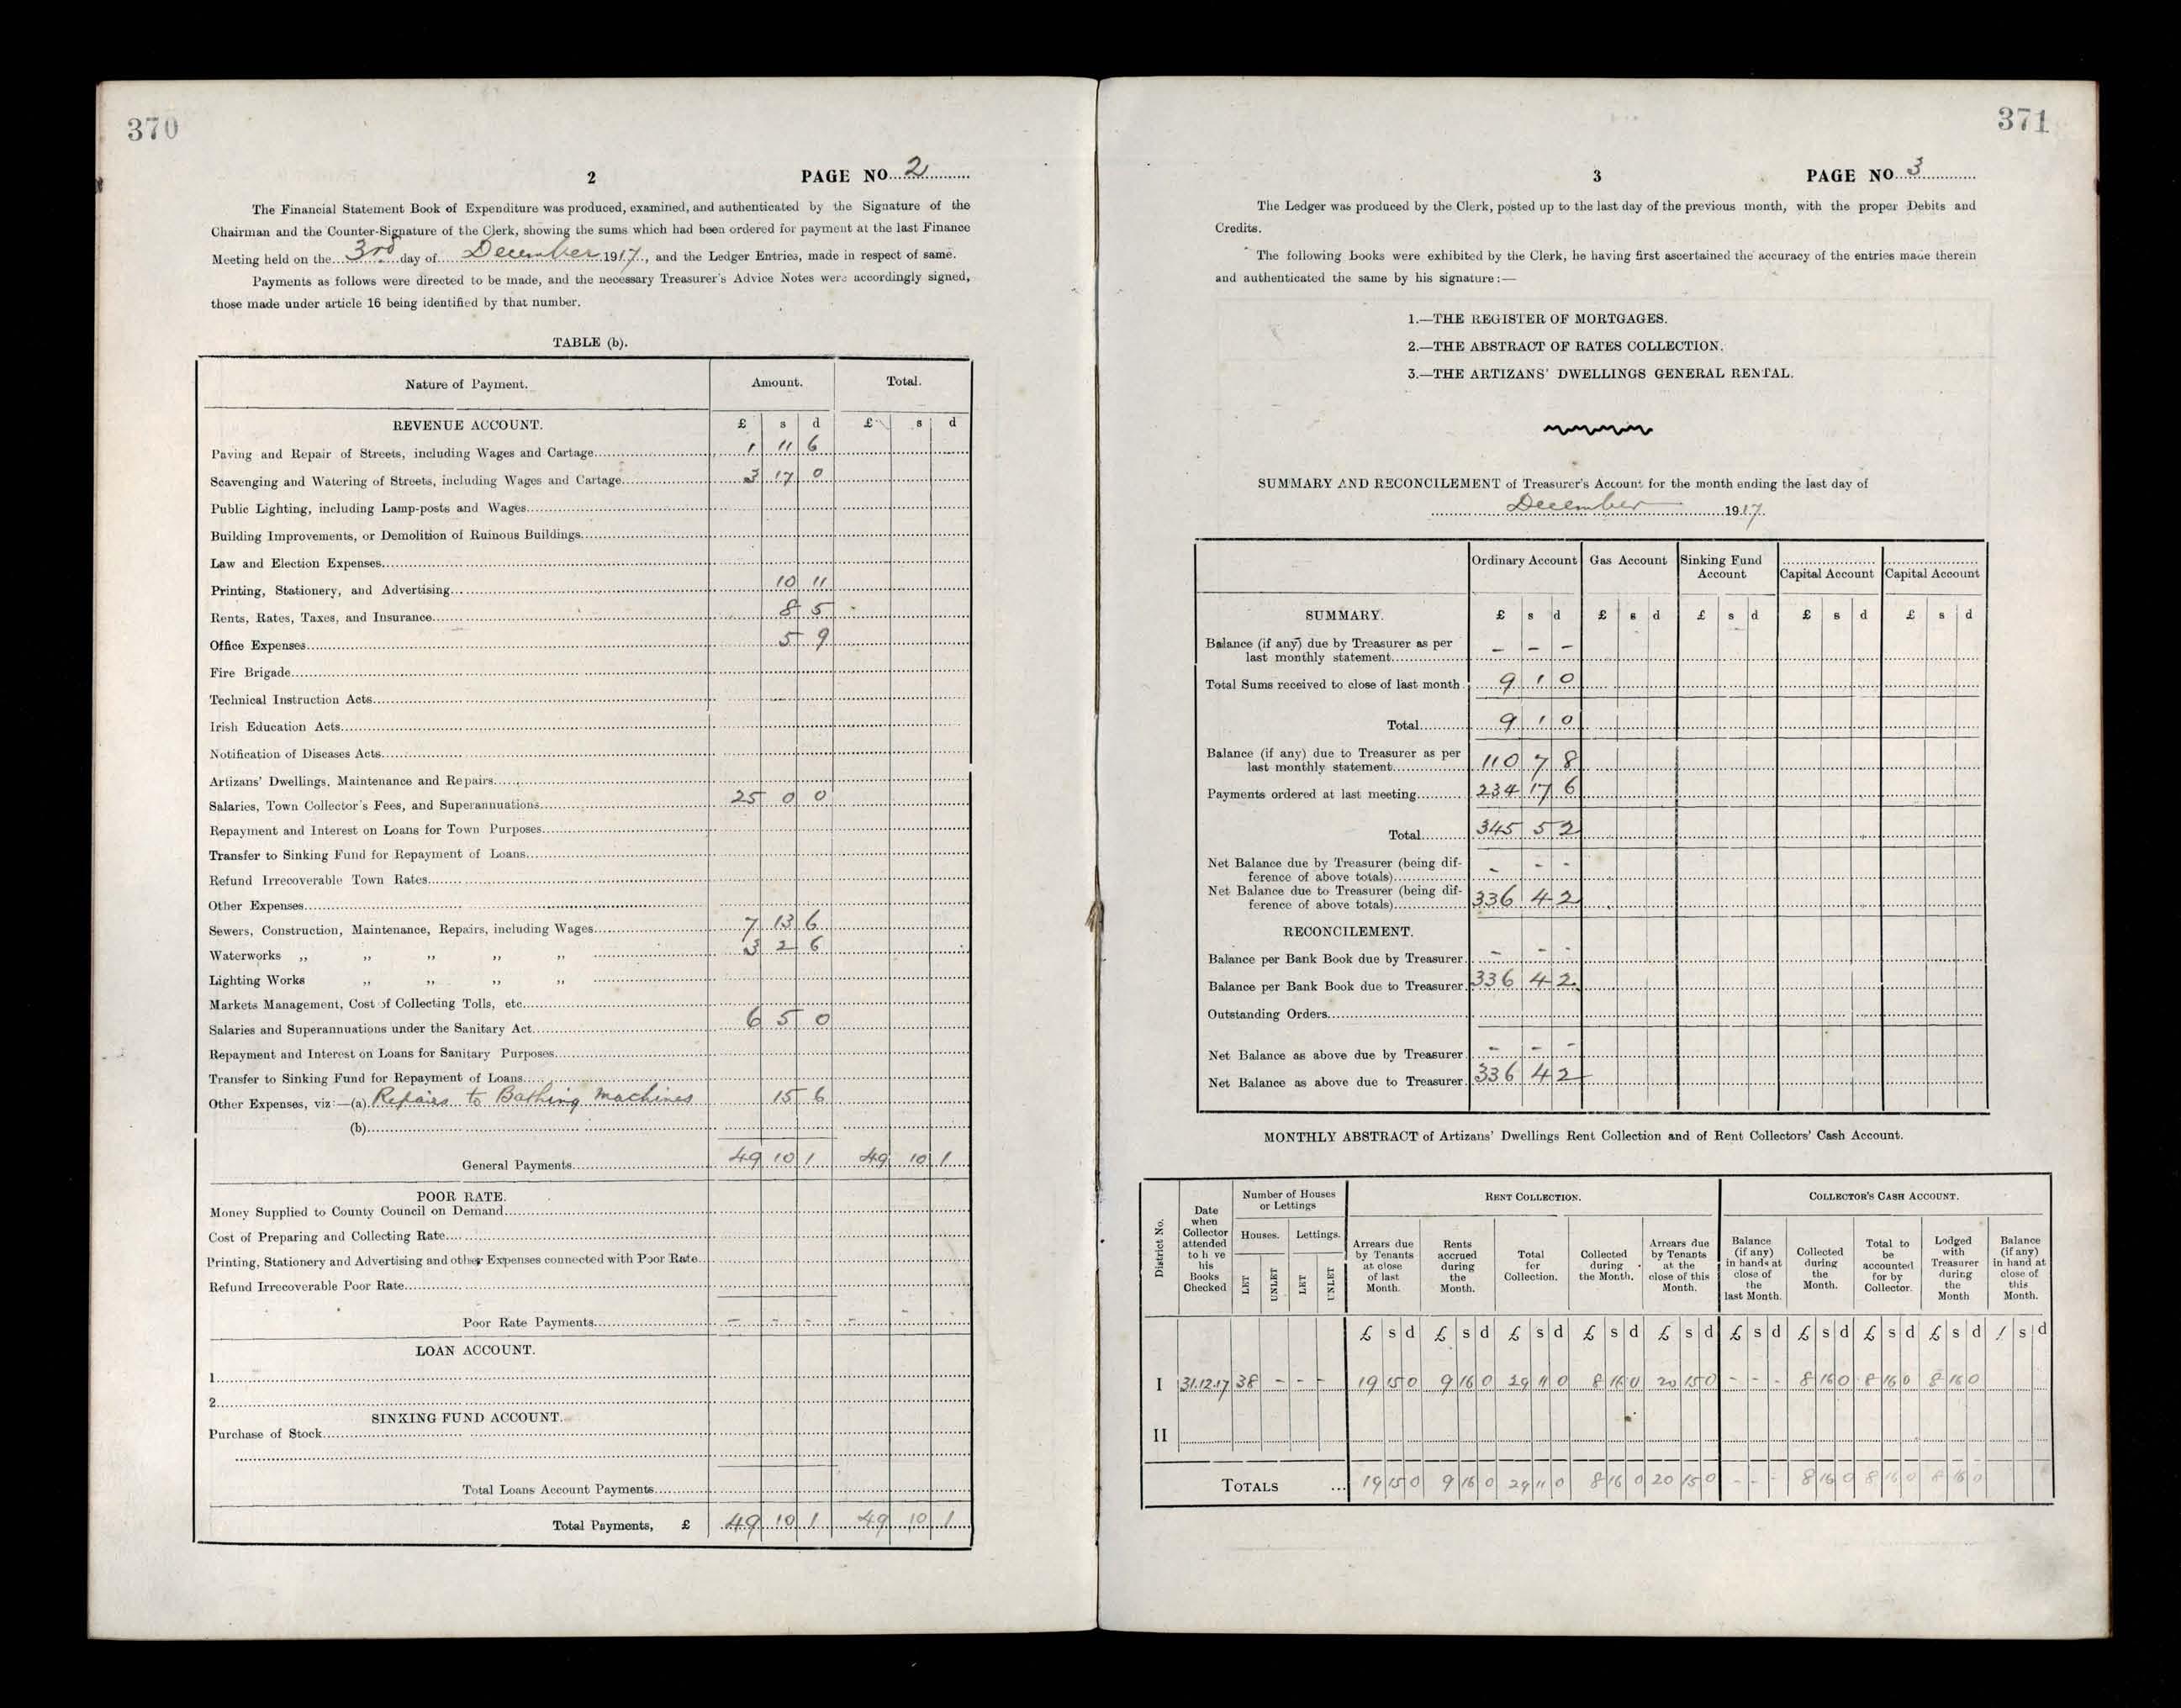 370
2 PAGE NO. 2
The Financial Statement Book of Expenditure was produced, examined, and authenticated by the Signature of the
Chairman and the Counter-Signature of the Clerk, showing the sums which had been ordered for payment at the last Finance
Meeting held on the 3rd day of December 1917, and the Ledger Entries, made in respect of same.
Payments as follows were directed to be made, and the necessary Treasurer's Advice Notes were accordingly signed,
those made under article 16 being identified by that number.
TABLE (b).
Nature of Payment. Amount. Total.
REVENUE ACCOUNT. £ s d £ s d
Paving and Repair of Streets, including Wages and Cartage 1 11 6
Scavenging and Watering of Streets, including Wages and Cartage 3 17 0
Public Lighting, including Lamp-posts and Wages
Building Improvements, or Demolition of Ruinous Buildings
Law and Election Expenses
Printing, Stationery, and Advertising 10 11
Rents, Rates, Taxes, and Insurance 8 5
Office Expenses 5 9
Fire Brigade
Technical Instruction Acts
Irish Education Acts
Notification of Diseases Acts
Artizans' Dwellings, Maintenance and Repairs
Salaries, Town Collector's Fees, and Superannuations 25 0 0
Repayment and Interest on Loans for Town Purposes
Transfer to Sinking Fund for Repayment of Loans
Refund Irrecoverable Town Rates
Other Expenses
Sewers, Construction, Maintenance, Repairs, including Wages 7 13 6
Waterworks ,, ,, ,, ,, ,, 3 2 6
Lighting Works ,, ,, ,, ,,
Markets Management, Cost of Collecting Tolls, etc
Salaries and Superannuations under the Sanitary Act 6 5 0
Repayment and Interest on Loans for Sanitary Purposes
Transfer to Sinking Fund for Repayment of Loans
Other Expenses, viz:—(a) Repairs to Bathing Machines 15 6
(b)
General Payments 49 10 1 49 10 1
POOR RATE.
Money Supplied to County Council on Demand
Cost of Preparing and Collecting Rate
Printing, Stationery and Advertising and other Expenses connected with Poor Rate
Refund Irrecoverable Poor Rate
Poor Rate Payments – – – –
LOAN ACCOUNT.
1
2
SINKING FUND ACCOUNT.
Purchase of Stock
Total Loans Account Payments
Total Payments, £ 49 10 1 49 10 1
371
3 PAGE NO 3
The Ledger was produced by the Clerk, posted up to the last day of the previous month, with the proper Debits and
Credits.
The following books were exhibited by the Clerk, he having first ascertained the accuracy of the entries made therein
and authenticated the same by his signature:—
1.—THE REGISTER OF MORTGAGES.
2.—THE ABSTRACT OF RATES COLLECTION.
3.—THE ARTIZANS' DWELLINGS GENERAL RENTAL.
SUMMARY AND RECONCILEMENT of Treasurer's Account for the month ending the last day of
December 1917.
Ordinary Account Gas Account Sinking Fund Account Capital Account Capital Account
SUMMARY. £ s d £ s d £ s d £ s d £ s d
Balance (if any) due by Treasurer as per
last monthly statement – – –
Total Sums received to close of last month 9 1 0
Total 9 1 0
Balance (if any) due to Treasurer as per
last monthly statement 110 7 8
Payments ordered at last meeting 234 17 6
Total 345 5 2
Net Balance due by Treasurer (being dif-
ference of above totals) – – –
Net Balance due to Treasurer (being dif-
ference of above totals) 336 4 2
RECONCILEMENT.
Balance per Bank Book due by Treasurer – – –
Balance per Bank Book due to Treasurer 336 4 2
Outstanding Orders
Net Balance as above due by Treasurer – – –
Net Balance as above due to Treasurer 336 4 2
MONTHLY ABSTRACT of Artizans' Dwellings Rent Collection and of Rent Collectors' Cash Account.
District No.
Date when Collector attended to h ve his Books Checked
Number of Houses or Lettings
Houses. Lettings.
LET UNLET LET UNLET
RENT COLLECTION.
Arrears due by Tenants at close of last Month.
Rents accrued during the Month.
Total for Collection.
Collected during the Month.
Arrears due by Tenants at the close of this Month.
COLLECTOR'S CASH ACCOUNT.
Balance (if any) in hands at close of the last Month.
Collected during the Month.
Total to be accounted for by Collector.
Lodged with Treasurer during the Month
Balance (if any) in hand at close of this Month.
£ s d £ s d £ s d £ s d £ s d £ s d £ s d £ s d £ s d £ s d
I 31.12.17 38 – – – 19 15 0 9 16 0 29 11 0 8 16 0 20 15 0 – – – 8 16 0 8 16 0 8 16 0
II
TOTALS ... 19 15 0 9 16 0 29 11 0 8 16 0 20 15 0 – – – 8 16 0 8 16 0 8 16 0